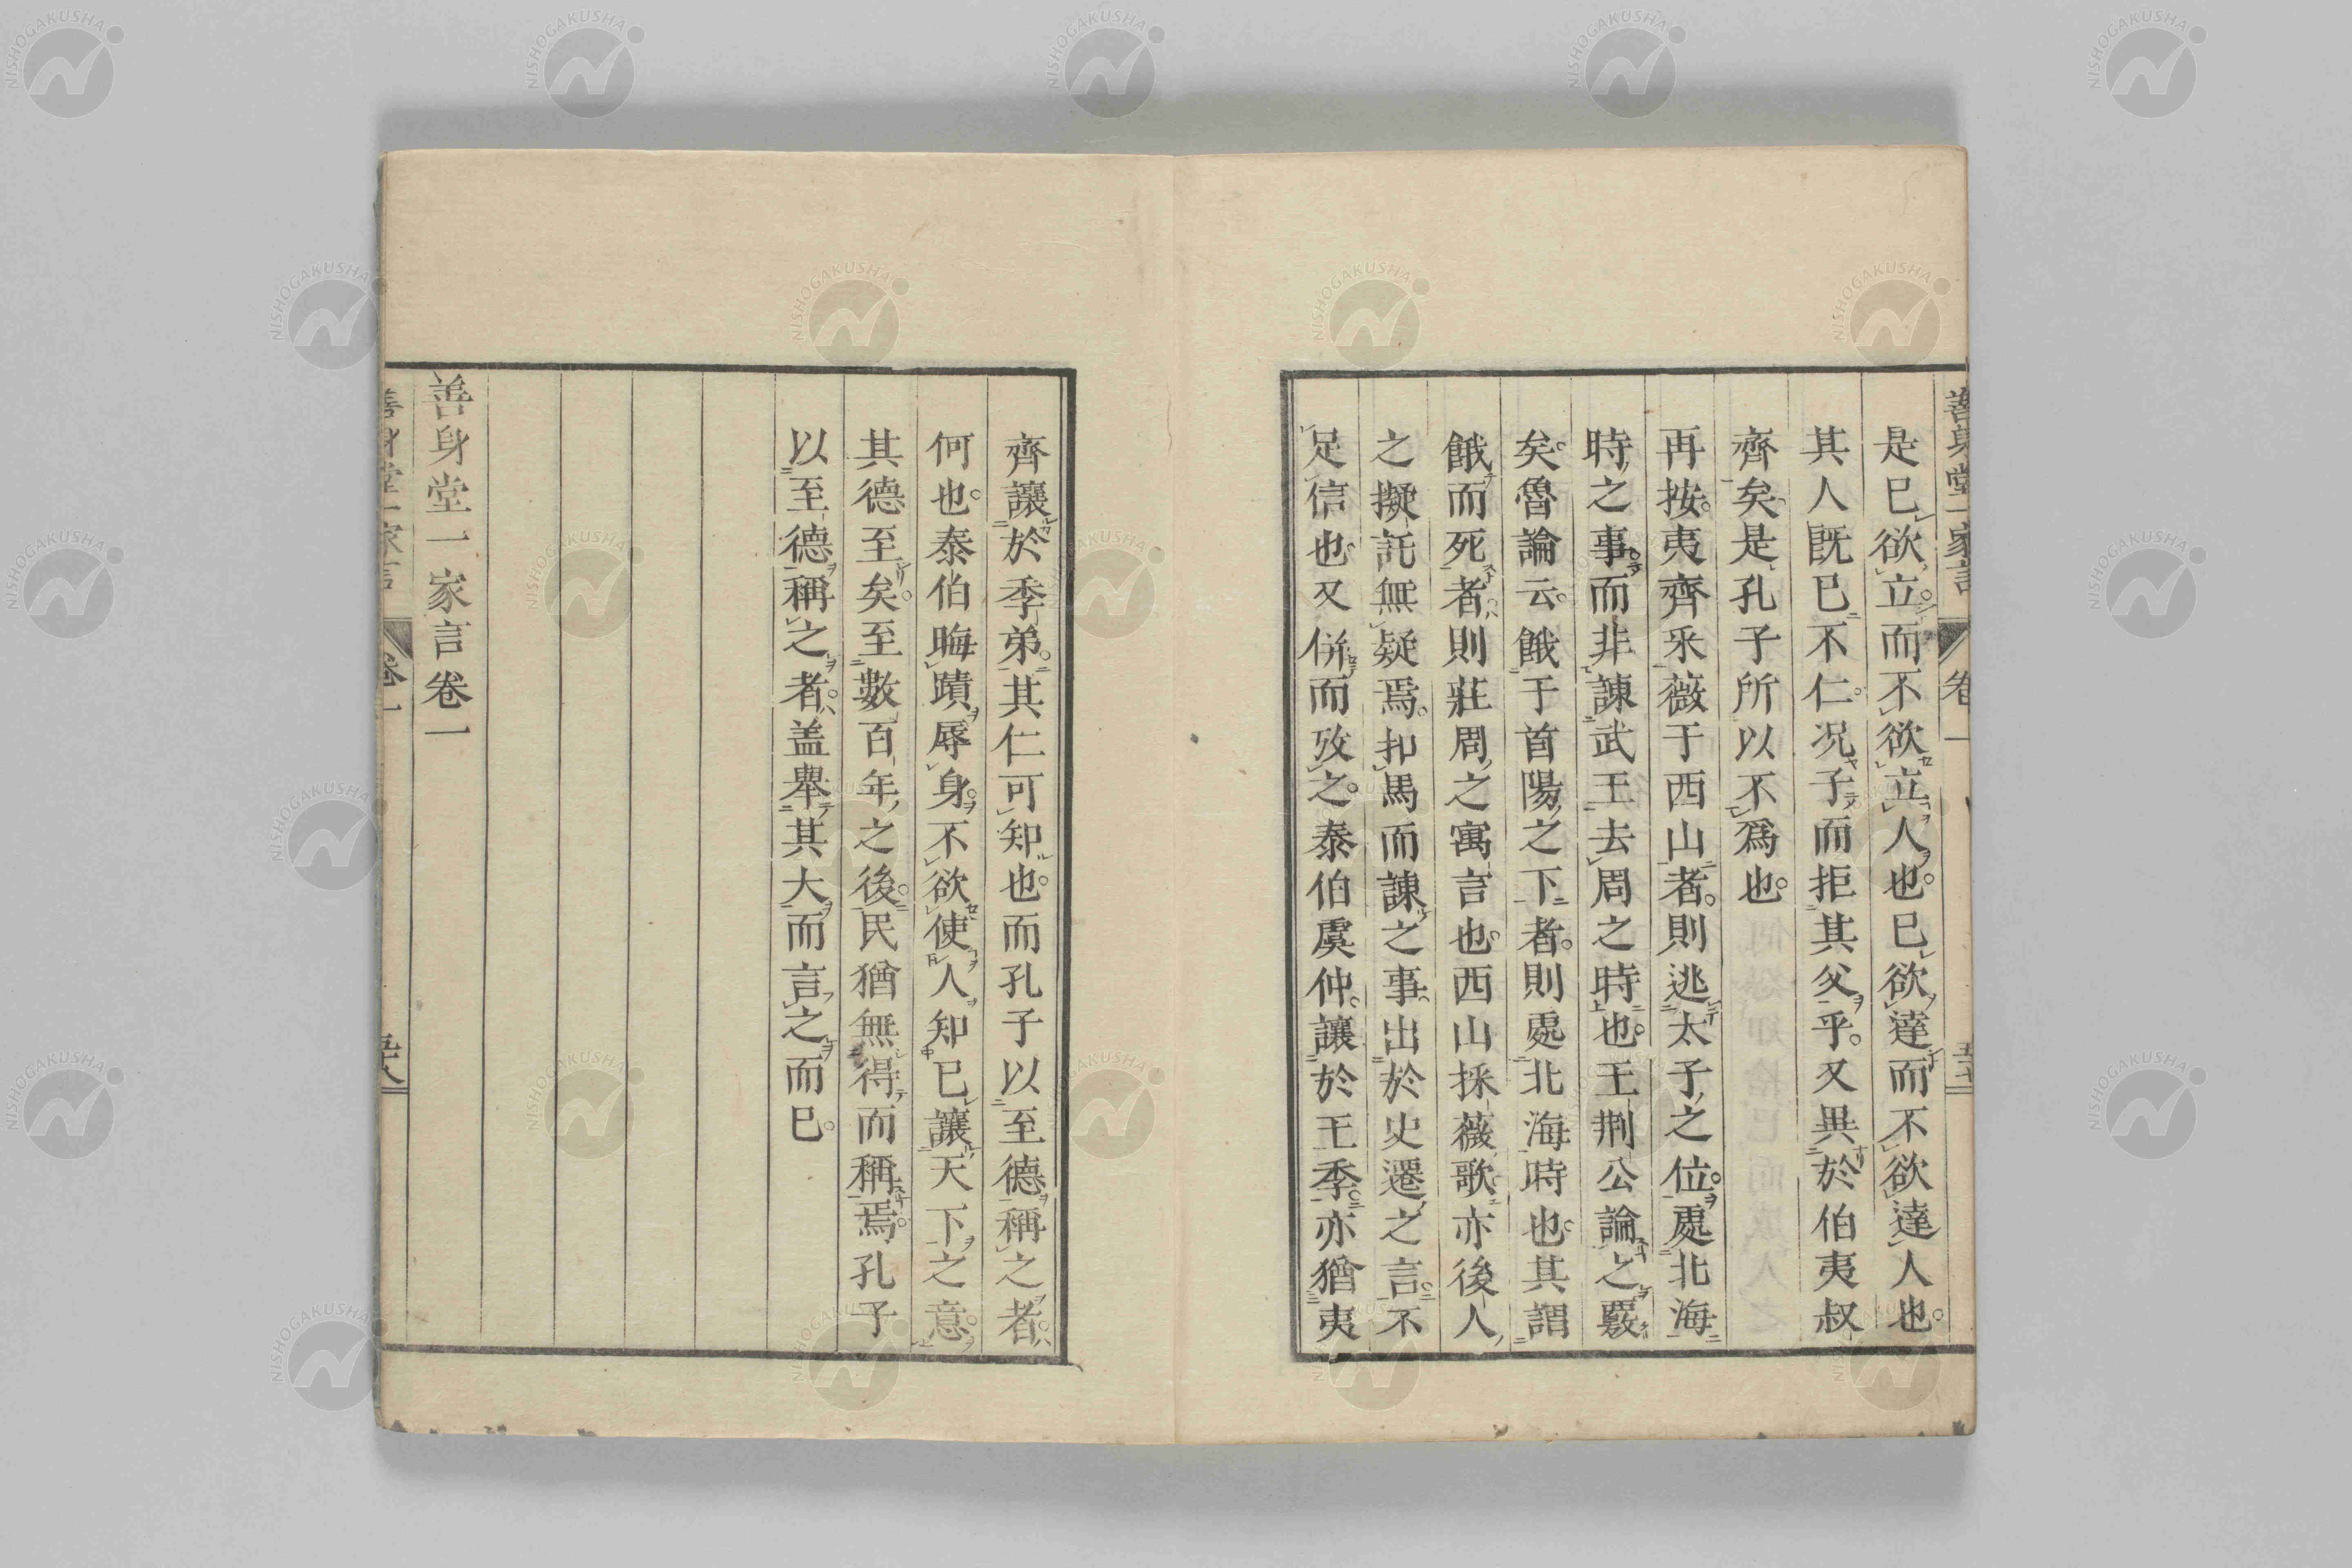 善身堂一家言 卷一
是已欲立而不欲立人也已欲達而不欲達人也
其人既已不仁况子而拒其父乎又異於伯夷叔
齊矣是孔子所以不爲也
再按夷齊采薇于西山者則逃太子之位處北海
時之事而非諫武王去周之時也王荆公論之覈
矣魯論云餓于首陽之下者則處北海時也其謂
餓而死者則莊周之寓言也西山採薇歌亦後人
之擬託無疑焉扣馬而諫之事出於史遷之言不
足信也又併而攷之泰伯虞仲讓於王季亦猶夷
齊讓於季弟其仁可知也而孔子以至德稱之者
何也泰伯晦蹟辱身不欲使人知已讓天下之意
其德至矣至數百年之後民猶無得而稱焉孔子
以至德稱之者盖舉其大而言之而已
善身堂一家言卷一
善身堂一家言 卷一
NISHOGAKUSHA